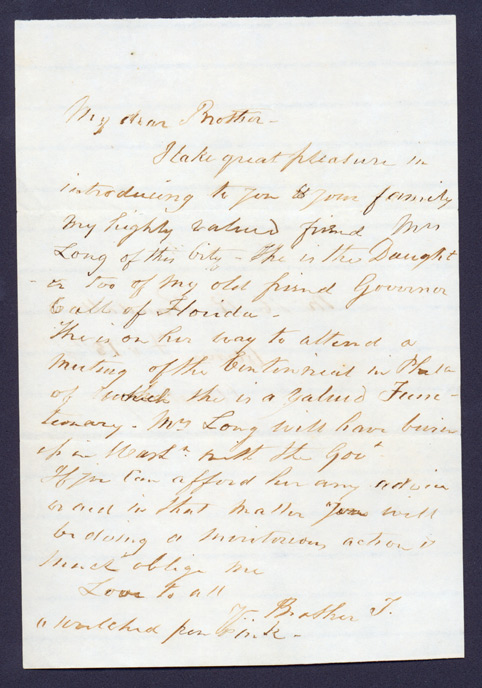 My dear Brother -
I take great pleasure in
introducing to you & your family
my highly valued friend Mrs
Long of this City - She is the Daught
er too of my old friend Governor
Call of Florida -
She is on her way to attend a
meeting of the Centennial in Phila
of which she is a valued Func-
tionary - Mrs Long will have busin
in Washn with the Govt
If you can afford her any advice
or aid in that matter you will
be doing a meritorious action &
much oblige me
Love to all
Yr Brother T.
a wretched pen & ink -